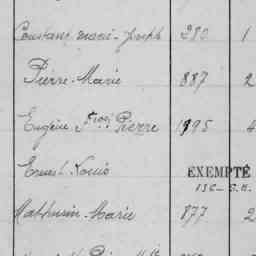 Constant Marie-Joseph 280 1
Pierre-Marie 887 2
Eugène Fçois Pierre 1895 4
Ernest Louis EXEMPTÉ
Mathurin-Marie 877 2